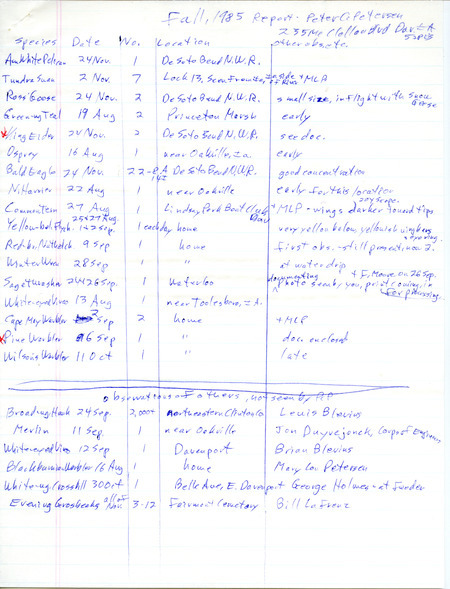 Fall, 1985 Report - Peter C. Petersen
235 McClellan Blvd Dav. IA 52803
Species Date No. Location other obs. etc.
Am. White Pelican 24 Nov. 1 DeSoto Bend N.W.R.
Tundra Swan 2 Nov. 7 Lock 13, seen from inside + MLP
Ross' Goose 24 Nov. 2 DeSoto Bend N.W.R. small size, in flight with Snow Geese
Green wing Teal 19 Aug 2 Princeton Marsh early
King Eider 24 Nov. 2 DeSoto Bend N.W.R. see doc.
Osprey 16 Aug 1 near Oakville, Ia. early
Bald Eagle 24 Nov. DeSoto Bend N.W.R. good concentration
N. Harrier 22 Aug 1 near Oakville early for this location
Common Tern 27 Aug 1 Lindsay Park Boat Club + MLP - wings darker toward tips
Yellow-bel. Flyc. 25 + 27 Aug. 1 + 2 Sep. 1 each day home very yellow below, yellowish wing bars + eye ring
Red-br. Nuthatch 9 Sep 1 home first obs. - still present Nov 2.
Winter Wren 28 Sep 1 " at water drip
Sage Thrasher 24 + 26 Sep. 1 Waterloo documenting photo sent by you, print coming in + F. Moore on 26 Sep. for publishing.
White-eyed Vireo 13 Aug 1 near Toolesboro, IA.
Cape May Warbler 2 Sep 2 home + MLP
Pine Warbler 6 Sep 1 " doc. enclosed
Wilson's Warbler 11 Oct 1 " late
observations of others, not seen by PCP
Broadwg. Hawk 24 Sep. 2,000+ northeastern Clinton Co Lewis Blevins
Merlin 11 Sep. 1 near Oakville Jon Duyvejonck, Corps of Engineers
White-eyed Vireo 12 Sep 1 Davenport Brian Blevins
Blackburnian Warbler 16 Aug 1 home Mary Lou Petersen
White-wg. Crossbill 30 Oct 1 Belle Ave, E. Davenport George Holmer - at feeder
Evening Grosbeaks all of Nov. 3-12 Fairmount Cemetery Bill LaFrenz